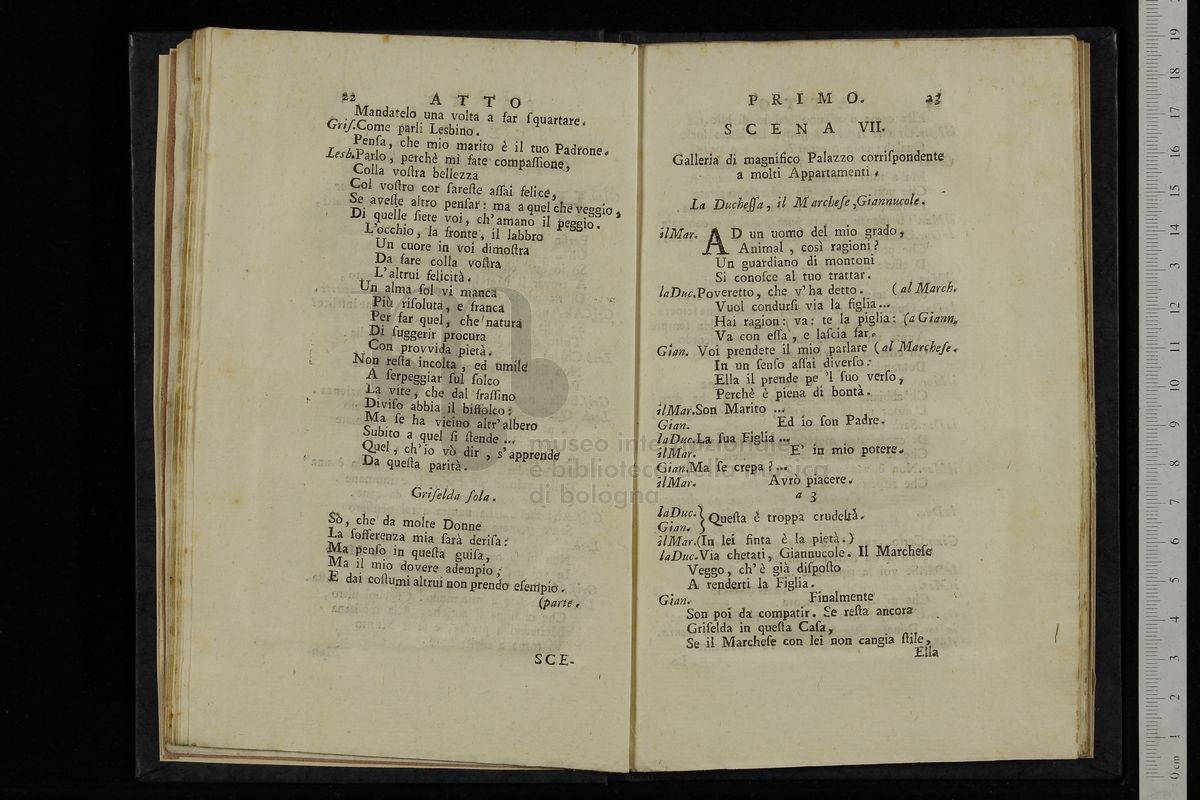 22 ATTO
Mandatelo una volta a far ſquartare.
Griſ.Come parli Lesbino.
Penſa, che mio marito è il tuo Padrone.
Lesb.Parlo, perchè mi fate compaſſione,
Colla voſtra bellezza
Col voſtro cor ſareſte aſſai felice,
Se aveſte altro penſar: ma a quel che veggio,
Di quelle ſiete voi, ch'amano il peggio.
L'occhio, la fronte, il labbro
Un cuore in voi dimoſtra
Da fare colla voſtra
L'altrui felicità.
Un alma ſol vi manca
Più riſoluta, e franca
Per far quel, che natura
Di ſuggerir procura
Con provvida pietà.
Non reſta incolta, ed umile
A ſerpeggiar ſul ſolco
La vite, che dal fraſſino
Diviſo abbia il biſſolco:
Ma ſe ha vicino altr'albero
Subito a quel ſi ſtende ...
Quel, ch'io vò dir, s'apprende
Da queſta parità.
Griſelda ſola.
Sò, che da molte Donne
La ſofferenza mia ſarà deriſa:
Ma penſo in queſta guiſa,
Ma il mio dovere adempio;
E dai coſtumi altrui non prendo eſempio.
(parte.
SCE-
PRIMO. 23
SCENA VII.
Galleria di magnifico Palazzo corriſpondente
a molti Appartamenti.
La Ducheſſa, il Marcheſe, Giannucole.
ilMar. AD un uomo del mio grado,
Animal, così ragioni?
Un guardiano di montoni
Si conoſce al tuo trattar.
laDuc.Poveretto, che v'ha detto. (al March.
Vuol condurſi via la figlia...
Hai ragion: va: te la piglia: (a Giann.
Va con eſſa, e laſcia far.
Gian. Voi prendete il mio parlare (al Marcheſe.
In un ſenſo aſſai diverſo:
Ella il prende pe 'l ſuo verſo,
Perchè è piena di bontà.
ilMar.Son Marito ...
Gian. Ed io ſon Padre.
laDuc.La ſua Figlia ...
ilMar. E' in mio potere.
Gian.Ma ſe crepa? ...
ilMar. Avrò piacere.
a 3
laDuc.}
Gian. } Queſta è troppa crudeltà.
ilMar.(In lei finta è la pietà.)
laDuc.Via chetati, Giannucole. Il Marcheſe
Veggo, ch'è già diſpoſto
A renderti la Figlia.
Gian. Finalmente
Son poi da compatir. Se reſta ancora
Griſelda in queſta Caſa,
Se il Marcheſe con lei non cangia ſtile,
Ella
museo internazionale
e biblioteca della musica
di bologna
0 cm 1 2 3 4 5 6 7 8 9 10 11 12 13 14 15 16 17 18 19